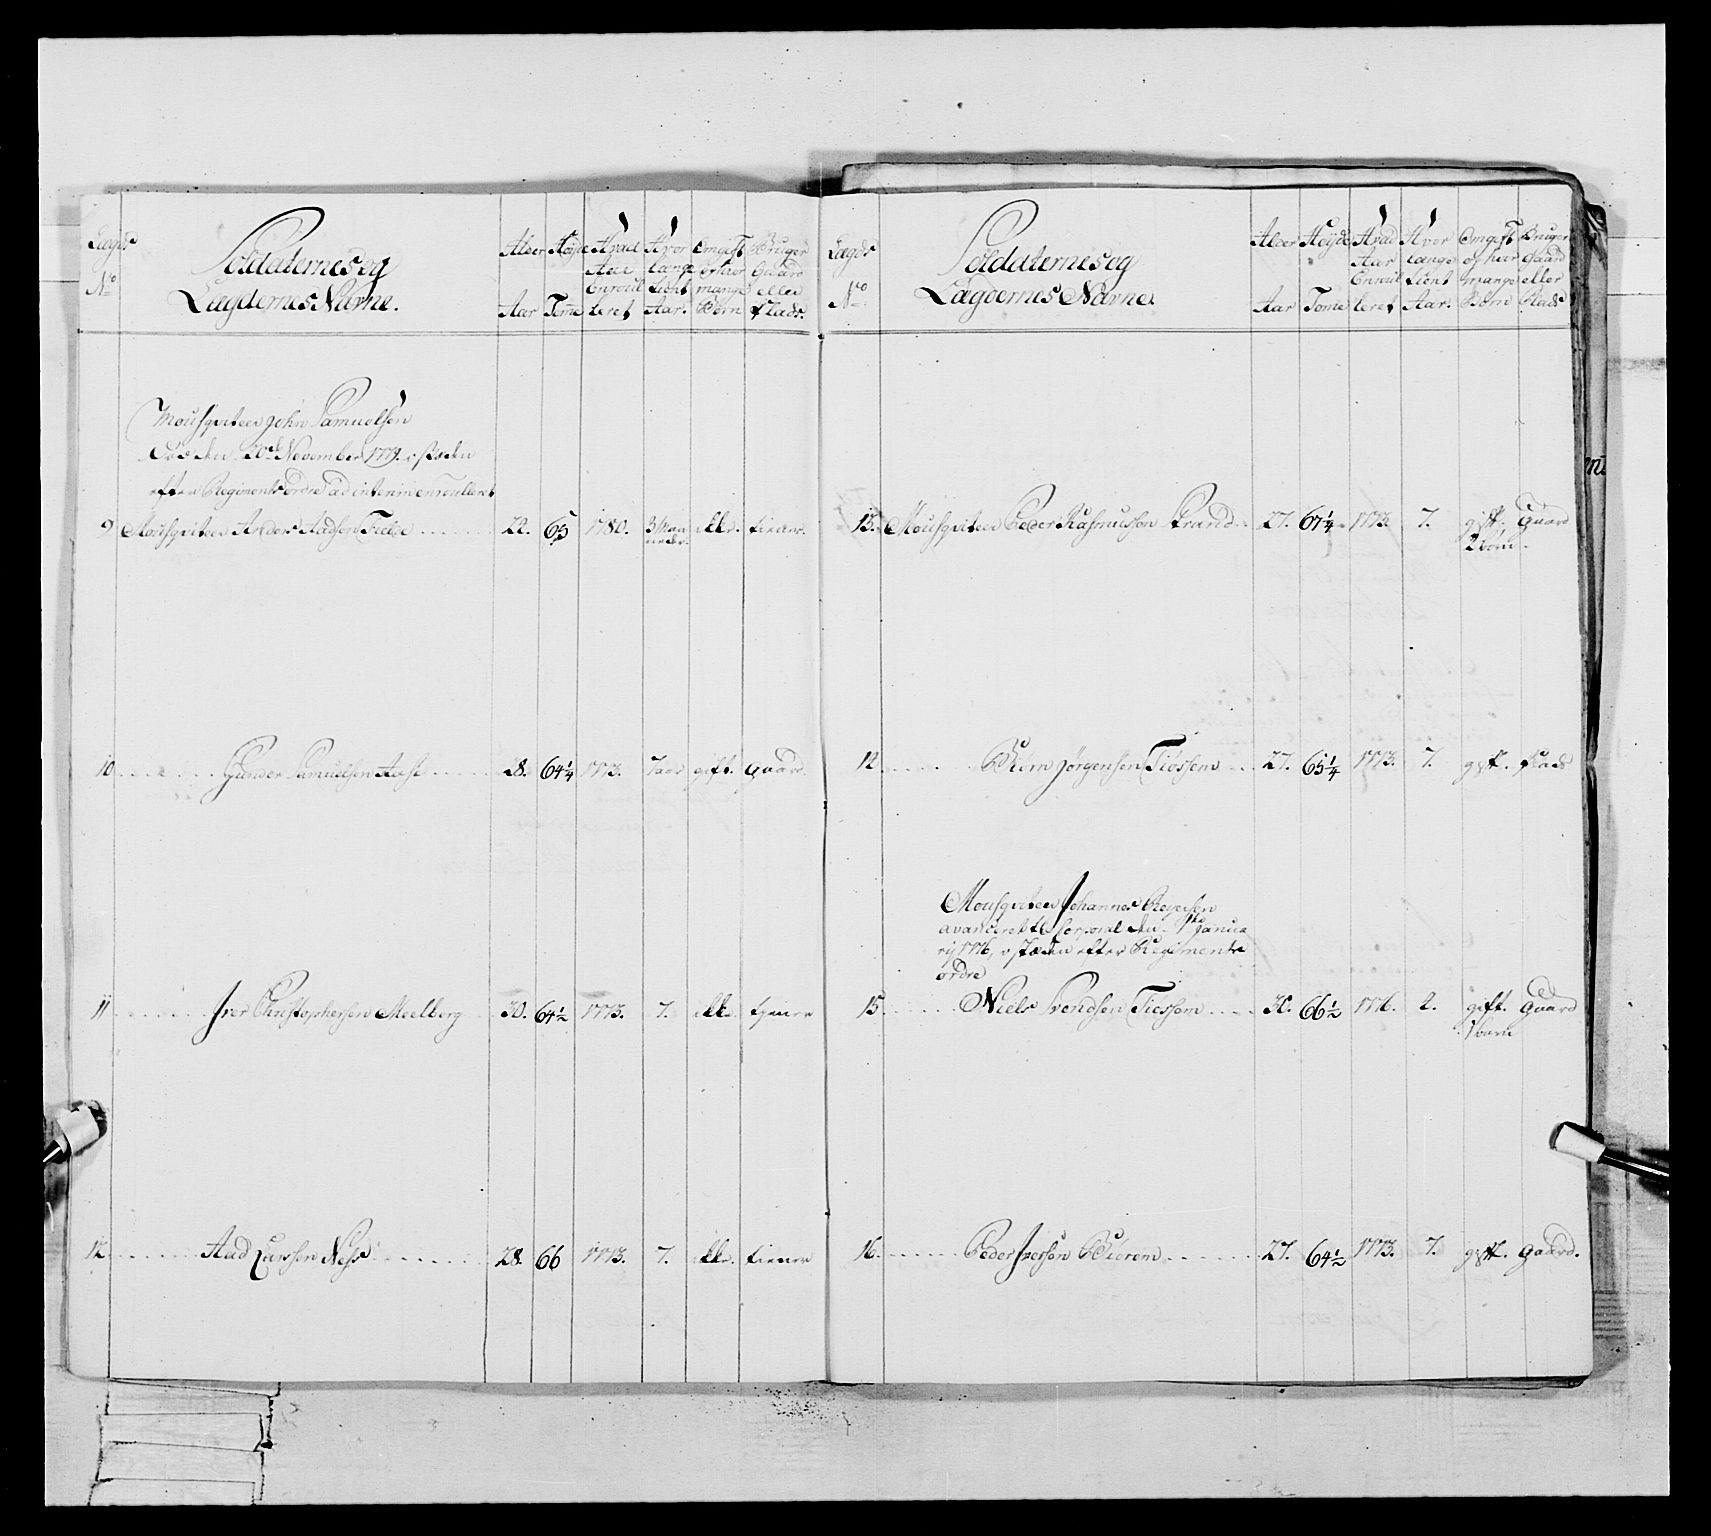 Lægds
No
Soldaternes og
Lægdernes Navne.
Alder
Aar
Høyde
Tome
Hvad
Aar
Enroul
leret
Hvor
længe
tient
Aar.
Om gift
og hvor
mange
Børn
Bruger
Gaard
eller
Plads.
Mousqviteer John Samuelsen
død den 20de November 1779. i stæden
efter Regiments ordre ad interim enroulleret
9 Mousqviteer Anders Aadsen 22. 65 1780. 3 Maa
neder. ikke. tiener.
10 Gunder Samuelsen Aase 28. 64 1/4 1773. 7 aar gift. Gaard.
11 Iver Christophersen Meelberg 30. 64 1/2 1773. 7. ikke. tiener
12 Aad Larssen Ness 28. 66 1773. 7. ikke. tiener
Lægds
No
Soldaternes og
Lægdernes Navne.
Alder
Aar
Høyde
Tome
Hvad
Aar
Enroul
leret
Hvor
længe
tient
Aar.
Om gift
og hvor
mange
Børn
Bruger
Gaard
eller
Plads
13. Mousqviteer Peder Rasmussen Strand 27. 67 1/4 1773. 7. gift. Gaard
2 børn.
14 Biørn Jørgensen Tiøssem 27. 65 1/4 1773. 7. gift. plads
Mousqviteer Johannes
avanceret til Corporal den 1te Janua
rij 1776, i stæden efter Regiments
ordre
15 Niels Svendsen Tiøssem 30. 66 1/2 1776. 2. gift. Gaard
1 barn
16 Peder Iversen Bierem 27. 64 1/2 1773. 7. gift. Gaard.